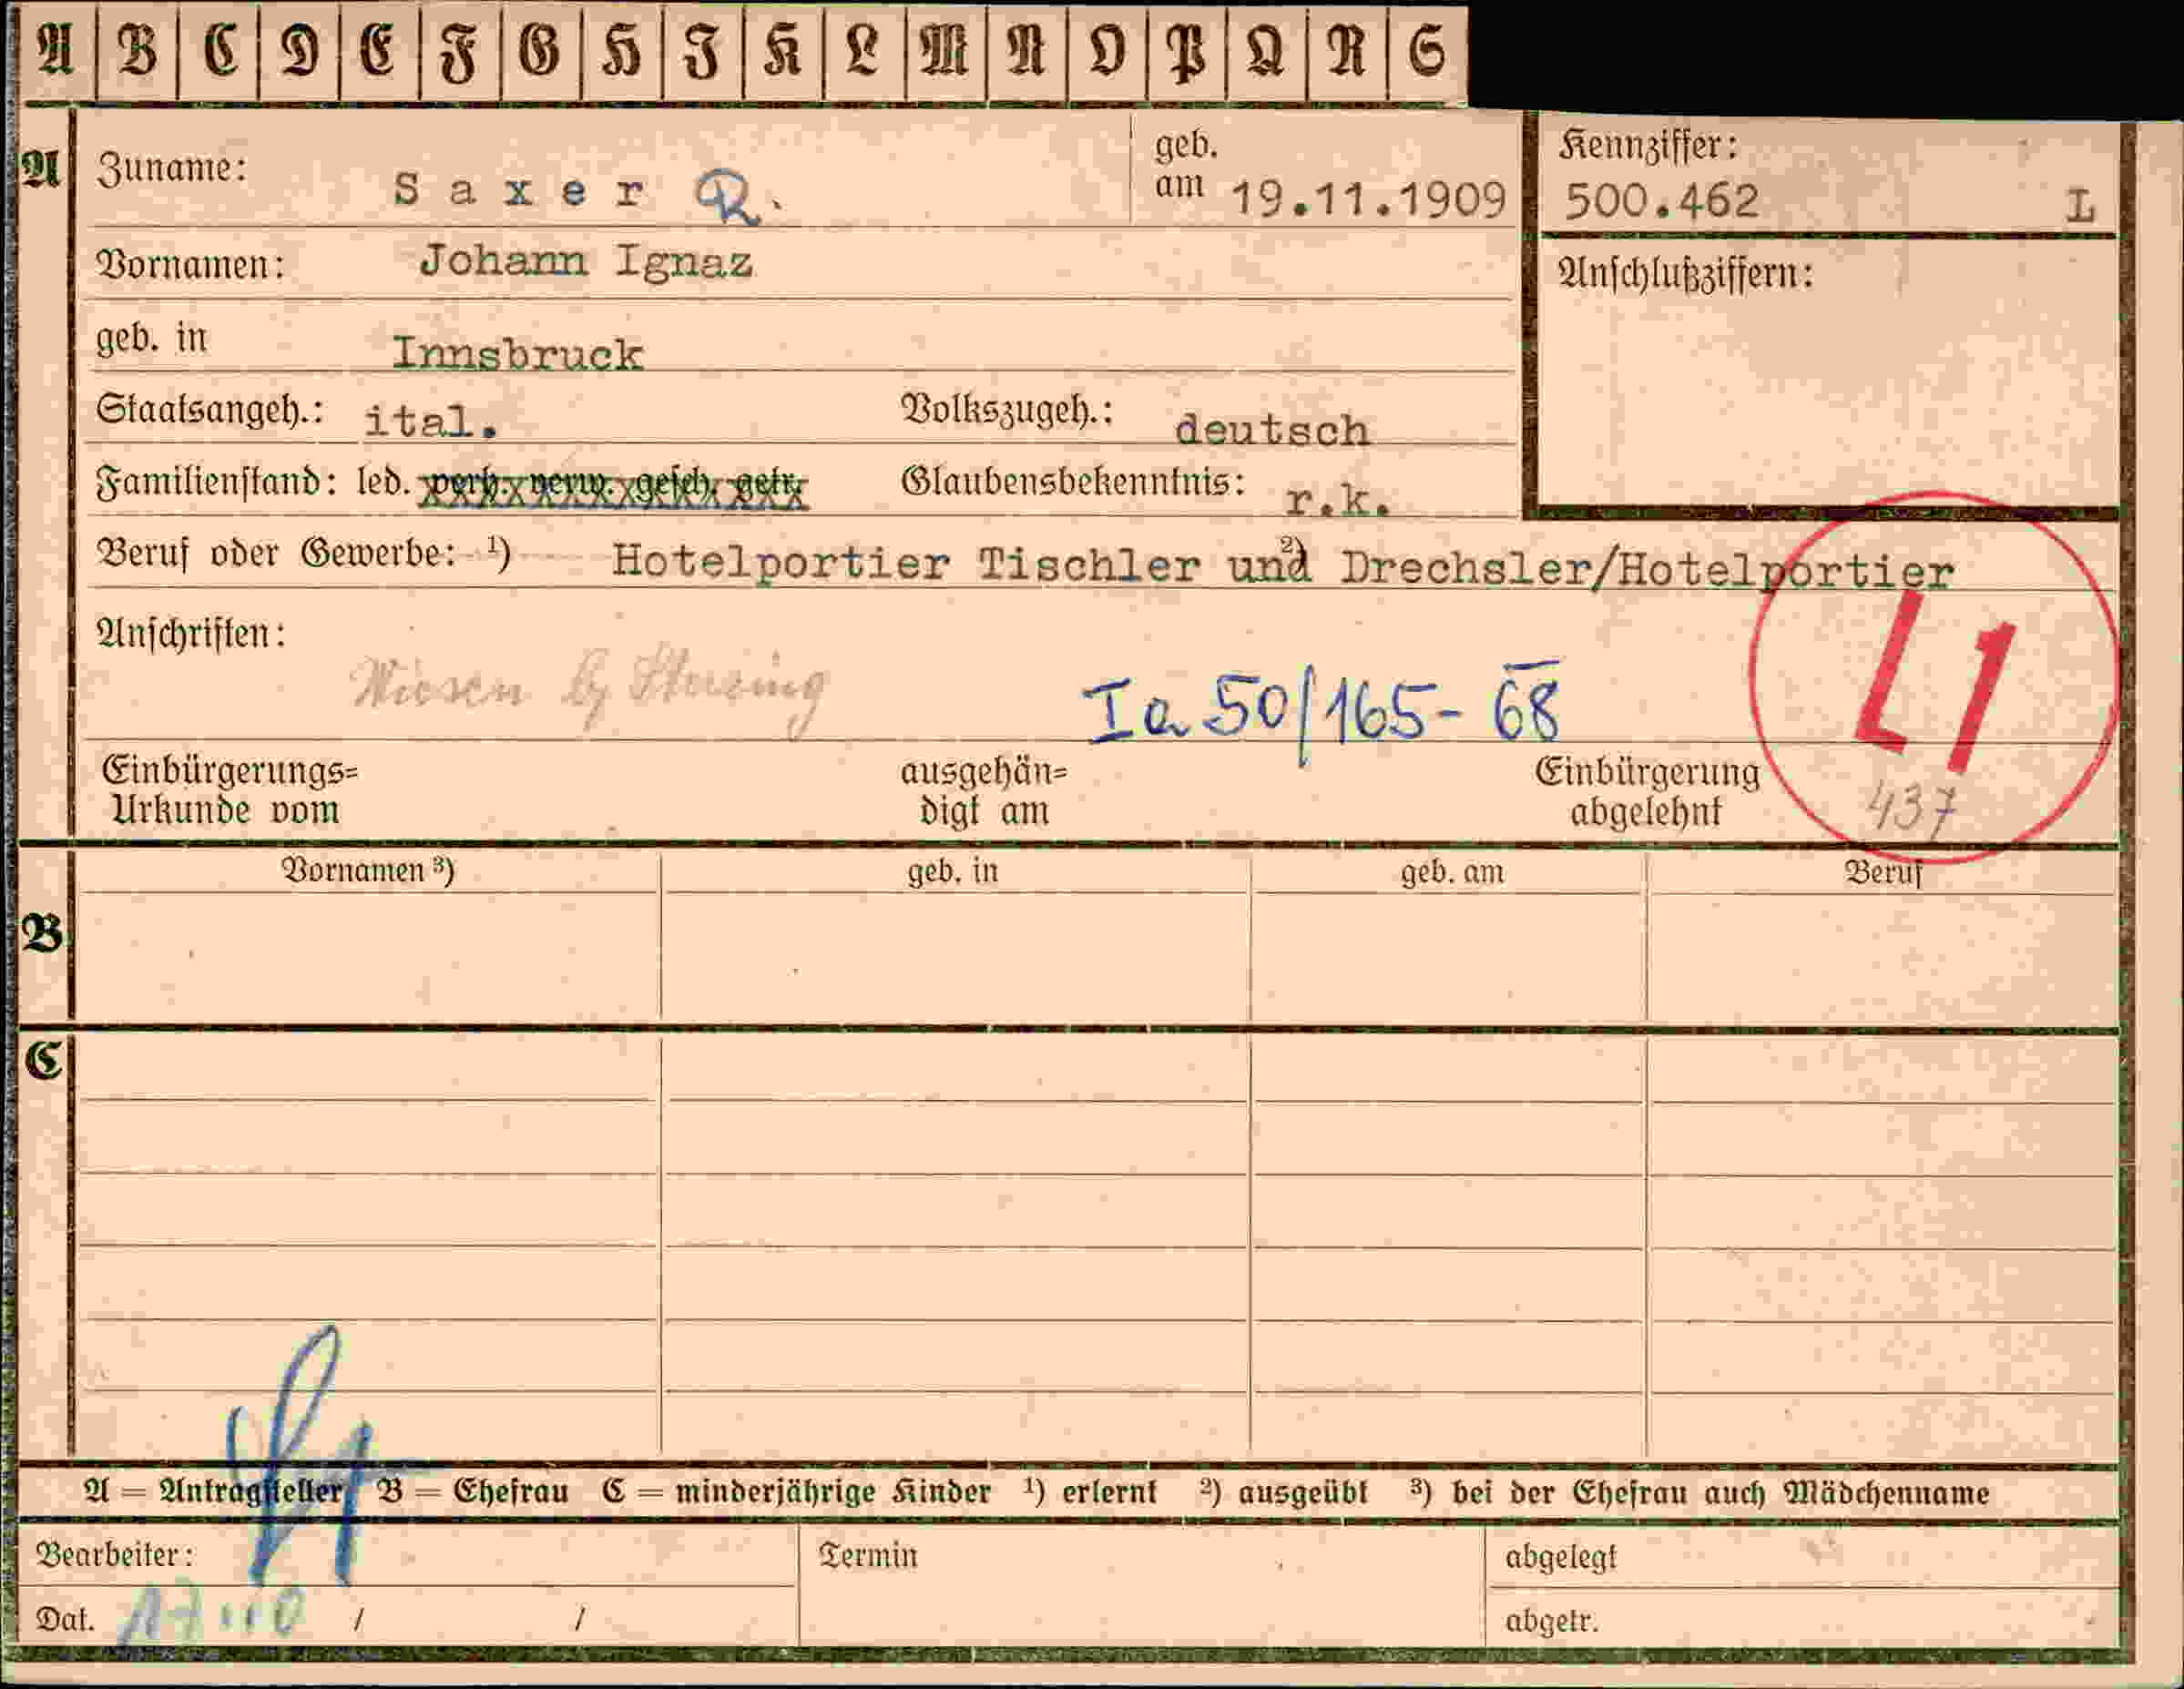 A B C D E F G H J K L M N O P Q R S
A Zuname: Saxer R. geb. am 19.11.1909 Kennziffer: 500.462 L
Vornamen: Johann Ignaz Anschlußziffern:
geb. in Innsbruck
Staatsangeh.: ital. Volkszugeh.: deutsch
Familienstand: led. verh. verw. gesch. getr. Glaubensbekenntnis: r.k.
Beruf oder Gewerbe: ¹) Hotelportier Tischler und ²) Drechsler/Hotelportier
Anschriften: Wiesen b/ Sterzing Ia 50/165-68 L1
Einbürgerungs= ausgehän= Einbürgerung 437
Urkunde vom digt am abgelehnt
Vornamen ³) geb. in geb. am Beruf
B
C
A = Antragsteller B = Ehefrau C = minderjährige Kinder ¹) erlernt ²) ausgeübt ³) bei der Ehefrau auch Mädchenname
Bearbeiter: Termin abgelegt
Dat. / / abgetr.